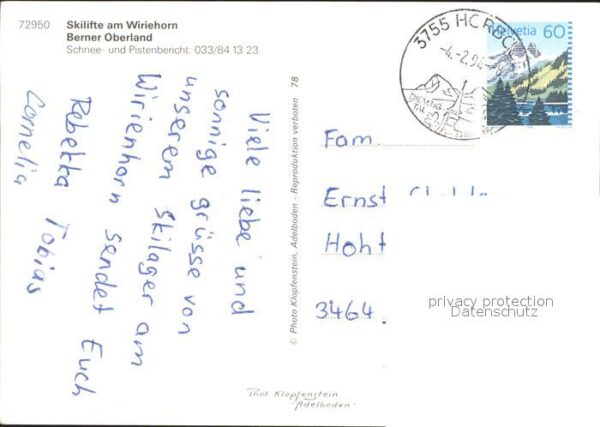 72950
Skilifte am Wiriehorn
Berner Oberland
Schnee- und Pistenbericht: 033/84 13 23
Viele liebe und
sonnige grüsse von
unserem Skilager am
Wirienhorn sendet Euch
Rebekka Tobias
Cornelia
© Photo Klopfenstein, Adelboden - Reproduktion verboten 78
3755 HORBOD
-4.-2.94
DIEMTIG-
TAL
Helvetia 60
Fam.
Ernst
Hoht
3464
privacy protection
Datenschutz
Phot Klopfenstein
Adelboden